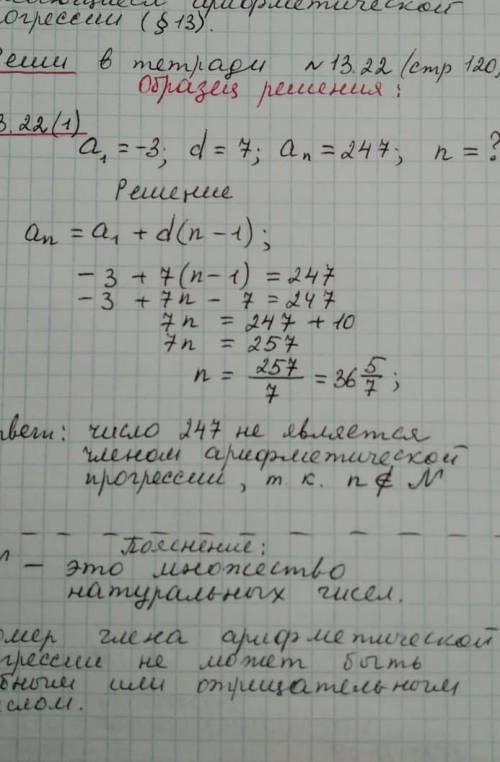 арифметической
(§ 13).
в тетради № 13.22 (стр 120)
Образец решения:
13.22(1)
a₁ = -3; d = 7; aₙ = 247; n = ?
Решение
aₙ = a₁ + d(n - 1);
- 3 + 7(n - 1) = 247
- 3 + 7n - 7 = 247
7n = 247 + 10
7n = 257
n = 257/7 = 36 5/7;
число 247 не является
членом арифметической
прогрессии, т к. n ∉ N
Пояснение:
– это множество
натуральных чисел.
члена арифметической
не может быть
или отрицательным